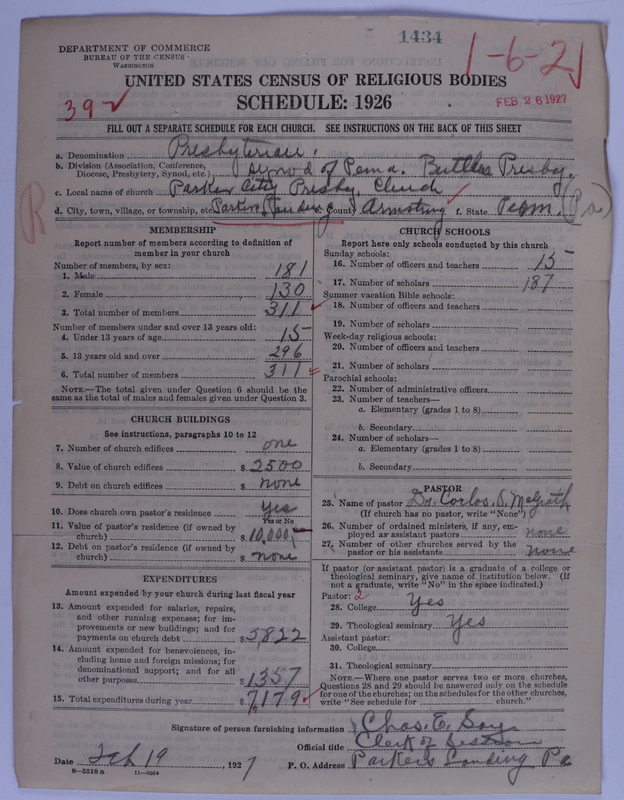 1434
1-6-21
DEPARTMENT OF COMMERCE
BUREAU OF THE CENSUS
WASHINGTON
UNITED STATES CENSUS OF RELIGIOUS BODIES
39-✓
SCHEDULE: 1926
FEB 26 1927
FILL OUT A SEPARATE SCHEDULE FOR EACH CHURCH. SEE INSTRUCTIONS ON THE BACK OF THIS SHEET
a. Denomination Presbyterian.
b. Division (Association, Conference, Diocese, Presbytery, Synod, etc.) Synod of Penna. Butler Presby.
c. Local name of church Parker City Presby. Church
d. City, town, village, or township, etc. Parkers Landing County Armstrong f. State Penn. (Pa)
R
MEMBERSHIP
Report number of members according to definition of
member in your church
Number of members, by sex:
1. Male 181
2. Female 130
3. Total number of members 311 ✓
Number of members under and over 13 years old:
4. Under 13 years of age 15
5. 13 years old and over 296
6. Total number of members 311
NOTE.—The total given under Question 6 should be the
same as the total of males and females given under Question 3.
CHURCH BUILDINGS
See instructions, paragraphs 10 to 12
7. Number of church edifices one
8. Value of church edifices $ 2500
9. Debt on church edifices $ none
10. Does church own pastor's residence yes
Yes or No
11. Value of pastor's residence (if owned by
church) $ 10,000
12. Debt on pastor's residence (if owned by
church) $ none
EXPENDITURES
Amount expended by your church during last fiscal year
13. Amount expended for salaries, repairs,
and other running expenses; for im-
provements or new buildings; and for
payments on church debt $ 5,822
14. Amount expended for benevolences, in-
cluding home and foreign missions; for
denominational support; and for all
other purposes $ 1357
15. Total expenditures during year $ 7,179 ✓
CHURCH SCHOOLS
Report here only schools conducted by this church
Sunday schools:
16. Number of officers and teachers 15
17. Number of scholars 187
Summer vacation Bible schools:
18. Number of officers and teachers
19. Number of scholars
Week-day religious schools:
20. Number of officers and teachers
21. Number of scholars
Parochial schools:
22. Number of administrative officers
23. Number of teachers—
a. Elementary (grades 1 to 8)
b. Secondary
24. Number of scholars—
a. Elementary (grades 1 to 8)
b. Secondary
PASTOR
25. Name of pastor Dr. Corlos S. McGrath
(If church has no pastor, write "None")
26. Number of ordained ministers, if any, em-
ployed as assistant pastors none
27. Number of other churches served by the
pastor or his assistants none
If pastor (or assistant pastor) is a graduate of a college or
theological seminary, give name of institution below. (If
not a graduate, write "No" in the space indicated.)
Pastor: 2
28. College Yes
29. Theological seminary Yes
Assistant pastor:
30. College
31. Theological seminary
NOTE.—Where one pastor serves two or more churches,
Questions 28 and 29 should be answered only on the schedule
for one of the churches; on the schedules for the other churches,
write "See schedule for church."
Signature of person furnishing information Chas. E.
Official title Clerk of Session
Date Feb 19, 1927 P. O. Address Parkers Landing Pa
8-5518 a 11-9564